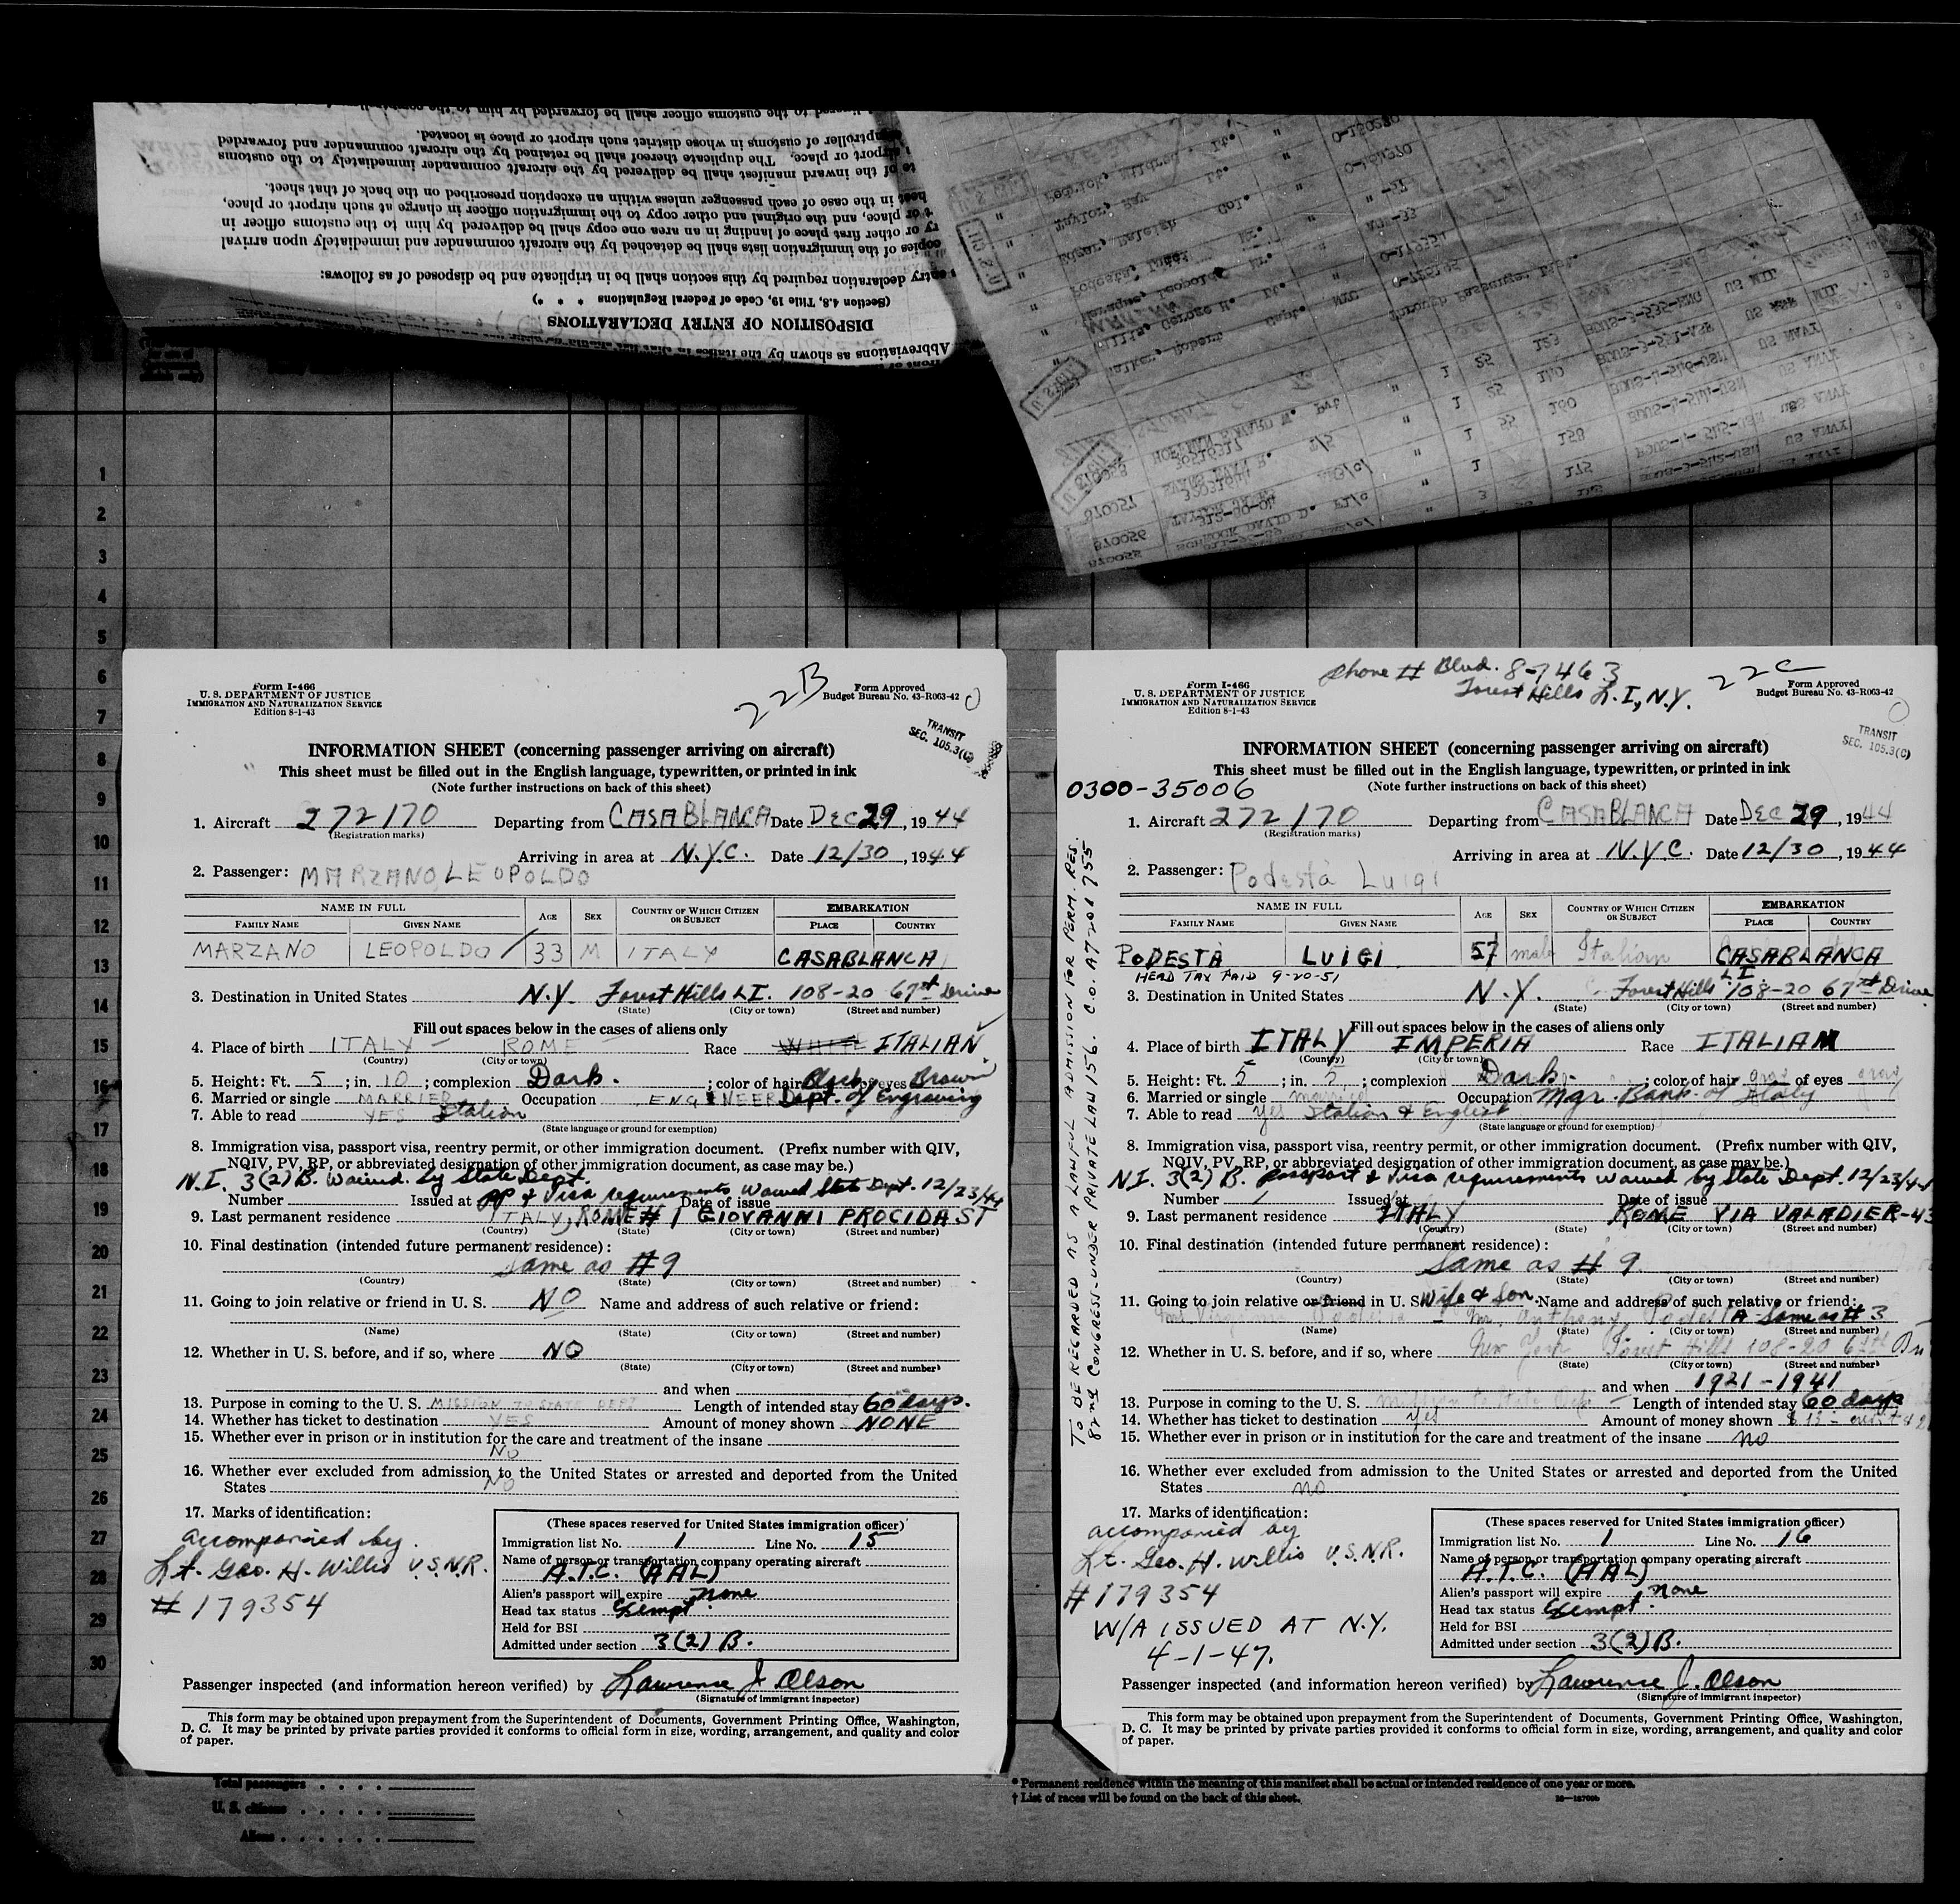 from of
Abbreviations as shown by the italics in
DISPOSITION OF ENTRY DECLARATIONS
(Section 4.8, Title 19, Code of Federal Regulations * * *)
entry declaration required by this section shall be in triplicate and be disposed of as follows:
copies of the immigration lists shall be detached by the aircraft commander and immediately upon arrival
ry or other first place of landing in an area one copy shall be delivered by him to the customs officer in
t or place, and the original and other copy to the immigration officer in charge at such airport or place,
heet in the case of each passenger unless within an exception prescribed on the back of that sheet.
te of the inward manifest shall be delivered by the aircraft commander immediately to the customs
airport or place. The duplicate thereof shall be retained by the aircraft commander and forwarded
mptroller of customs in whose district such airport or place is located.
to the customs officer shall be forwarded by him to the
Taylor, Ray Lt.
Edgar, Raleigh Col.
Podesta, Luigi Mr.
Willis, George H. Lt.
Walker, Robert Capt.
Through Passenger List.
1
2
3
4
5
6
7
8
9
10
11
12
13
14
15
16
17
18
19
20
21
22
23
24
25
26
27
28
29
30
Form I-466
U. S. DEPARTMENT OF JUSTICE
IMMIGRATION AND NATURALIZATION SERVICE
Edition 8-1-43
22B
Form Approved
Budget Bureau No. 43-R063-42
TRANSIT
SEC. 105.3(C)
INFORMATION SHEET (concerning passenger arriving on aircraft)
This sheet must be filled out in the English language, typewritten, or printed in ink
(Note further instructions on back of this sheet)
1. Aircraft 272170 Departing from CASABLANCA Date DEC 29, 1944
(Registration marks)
Arriving in area at N.Y.C. Date 12/30, 1944
2. Passenger: MARZANO, LEOPOLDO
NAME IN FULL AGE SEX COUNTRY OF WHICH CITIZEN OR SUBJECT EMBARKATION
FAMILY NAME GIVEN NAME PLACE COUNTRY
MARZANO LEOPOLDO 33 M ITALY CASABLANCA
3. Destination in United States N.Y. Forest Hills L.I. 108-20 67th Drive
(State) (City or town) (Street and number)
Fill out spaces below in the cases of aliens only
4. Place of birth ITALY - ROME Race WHITE ITALIAN
(Country) (City or town)
5. Height: Ft. 5; in. 10; complexion Dark. ; color of hair Black of eyes Brown
6. Married or single MARRIED Occupation ENGINEER Dept. of Engraving
7. Able to read YES Italian
(State language or ground for exemption)
8. Immigration visa, passport visa, reentry permit, or other immigration document. (Prefix number with QIV,
NQIV, PV, RP, or abbreviated designation of other immigration document, as case may be.)
N.I. 3(2) B. Waived by State Dept.
Number Issued at PP & Visa requirements waived State Dept. 12/23/44 Date of issue
9. Last permanent residence ITALY, ROME #1 GIOVANNI PROCIDA ST
(Country) (State) (City or town) (Street and number)
10. Final destination (intended future permanent residence):
Same as #9
(Country) (State) (City or town) (Street and number)
11. Going to join relative or friend in U. S. NO Name and address of such relative or friend:
(Name) (State) (City or town) (Street and number)
12. Whether in U. S. before, and if so, where NO
(State) (City or town) (Street and number)
and when
13. Purpose in coming to the U. S. MISSION TO STATE DEPT Length of intended stay 60 days.
14. Whether has ticket to destination YES Amount of money shown NONE
15. Whether ever in prison or in institution for the care and treatment of the insane
NO
16. Whether ever excluded from admission to the United States or arrested and deported from the United
States NO
17. Marks of identification:
accompanied by
Lt. Geo. H. Willis U.S.N.R.
#179354
(These spaces reserved for United States immigration officer)
Immigration list No. 1 Line No. 15
Name of person or transportation company operating aircraft
A.T.C. (AAL)
Alien's passport will expire none
Head tax status Exempt.
Held for BSI
Admitted under section 3(2) B.
Passenger inspected (and information hereon verified) by Lawrence J. Olson
(Signature of immigrant inspector)
This form may be obtained upon prepayment from the Superintendent of Documents, Government Printing Office, Washington,
D. C. It may be printed by private parties provided it conforms to official form in size, wording, arrangement, and quality and color
of paper.
Phone # Blvd. 8-7463
Forest Hills L.I., N.Y.
22C
Form I-466
U. S. DEPARTMENT OF JUSTICE
IMMIGRATION AND NATURALIZATION SERVICE
Edition 8-1-43
Form Approved
Budget Bureau No. 43-R063-42
TRANSIT
SEC. 105.3(C)
INFORMATION SHEET (concerning passenger arriving on aircraft)
This sheet must be filled out in the English language, typewritten, or printed in ink
(Note further instructions on back of this sheet)
0300-35006
1. Aircraft 272170 Departing from CASABLANCA Date DEC 29, 1944
(Registration marks)
Arriving in area at N.Y.C. Date 12/30, 1944
2. Passenger: Podestà Luigi
NAME IN FULL AGE SEX COUNTRY OF WHICH CITIZEN OR SUBJECT EMBARKATION
FAMILY NAME GIVEN NAME PLACE COUNTRY
PODESTÀ LUIGI 57 male Italian CASABLANCA
HEAD TAX PAID 9-20-51
3. Destination in United States N.Y. Forest Hills L.I. 108-20 67th Drive
(State) (City or town) (Street and number)
Fill out spaces below in the cases of aliens only
4. Place of birth ITALY IMPERIA Race ITALIAN
(Country) (City or town)
5. Height: Ft. 5; in. 5; complexion Dark. ; color of hair gray of eyes gray
6. Married or single married Occupation Mgr. Bank of Italy
7. Able to read yes Italian & English
(State language or ground for exemption)
8. Immigration visa, passport visa, reentry permit, or other immigration document. (Prefix number with QIV,
NQIV, PV, RP, or abbreviated designation of other immigration document, as case may be.)
N.I. 3(2) B. Passport & Visa requirements waived by State Dept. 12/23/44
Number Issued at Date of issue
9. Last permanent residence ITALY ROME VIA VALADIER-43
(Country) (State) (City or town) (Street and number)
10. Final destination (intended future permanent residence):
Same as #9.
(Country) (State) (City or town) (Street and number)
11. Going to join relative or friend in U. S. Wife & Son. Name and address of such relative or friend:
Mrs Virginia Podesta Mr. Anthony Podesta Same as #3
(Name) (State) (City or town) (Street and number)
12. Whether in U. S. before, and if so, where New York Forest Hills 108-20 67th
(State) (City or town) (Street and number)
and when 1921-1941
13. Purpose in coming to the U. S. mission to State Dep Length of intended stay 60 days
14. Whether has ticket to destination yes Amount of money shown
15. Whether ever in prison or in institution for the care and treatment of the insane no
16. Whether ever excluded from admission to the United States or arrested and deported from the United
States no
17. Marks of identification:
accompanied by
Lt. Geo. H. Willis U.S.N.R.
#179354
W/A ISSUED AT N.Y.
4-1-47.
(These spaces reserved for United States immigration officer)
Immigration list No. 1 Line No. 16
Name of person or transportation company operating aircraft
A.T.C. (AAL)
Alien's passport will expire none
Head tax status Exempt.
Held for BSI
Admitted under section 3(2) B.
Passenger inspected (and information hereon verified) by Lawrence J. Olson
(Signature of immigrant inspector)
This form may be obtained upon prepayment from the Superintendent of Documents, Government Printing Office, Washington,
D. C. It may be printed by private parties provided it conforms to official form in size, wording, arrangement, and quality and color
of paper.
TO BE REGARDED AS A LAWFUL ADMISSION FOR PERM. RES.
82nd CONGRESS UNDER PRIVATE LAW 156. C.O. A7201755
Total passengers
U. S. citizens
Aliens
* Permanent residence within the meaning of this manifest shall be actual or intended residence of one year or more.
† List of races will be found on the back of this sheet.